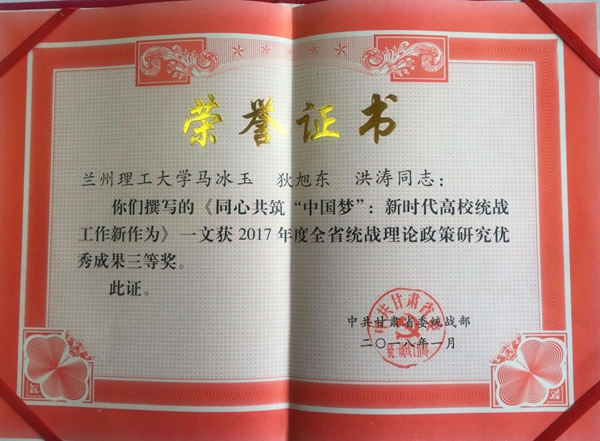 荣誉证书
兰州理工大学马冰玉 狄旭东 洪涛同志：
你们撰写的《同心共筑“中国梦”：新时代高校统战
工作新作为》一文获2017年度全省统战理论政策研究优
秀成果三等奖。
此证。
中共甘肃省委统战部
二〇一八年一月